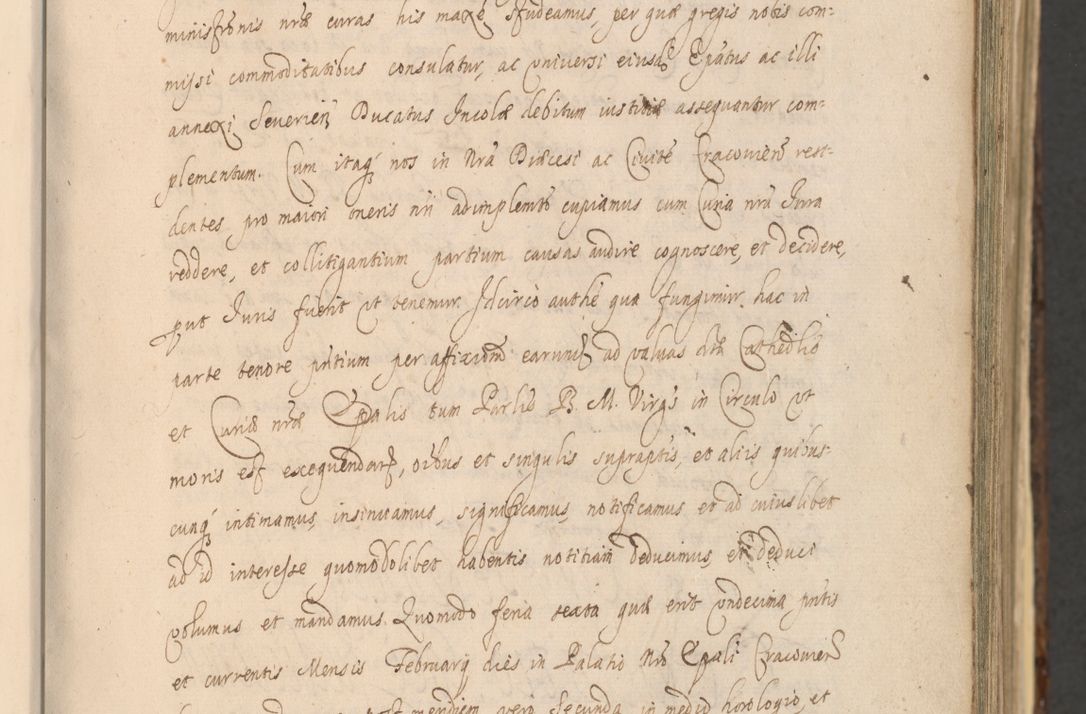 ministrõnis nrãe curas his maxe studeamus, per quæ gregis nobis com=
missi commoditatibus consulatur, ac universi eiusd. Epãtus ac illi
annexi Severień. Ducatus Incolæ debitum iustitiæ assequantur com=
plementum. Cum itaq́ nos in Nrã Diœcesi ac Civitẽ Cracovień resi=
dentes, pro maiori oneris nři adimplemto cupiamus cum Curia nrã Iura
reddere, et collitigantium partium causas audire cognoscere, et decidere,
put Iuris fuerit ut tenemur. Idcirco authẽ qua fungimur hac in
parte tenore pñtium per affixionẽ earund ad valvas dtæ Cathedlis
et Curiæ nræ Epalis tum Parlis B. M. Virgs in Circulo ut
moris est exequendar, oibus et singulis supraptis, et aliis quibus
cunq́ intimamus, insinuamus, significamus, notificamus et ad cuiuslibet
ad id interesse quomodolibet habentis notitiam deducimus, et deduci
volumus et mandamus. Quomodo feria sexta quæ erit undecima pñtis
et currentis Mensis Februarij dies in Palatio Nro Epali Cracovień
meridiem vero secunda in medio horologio, et